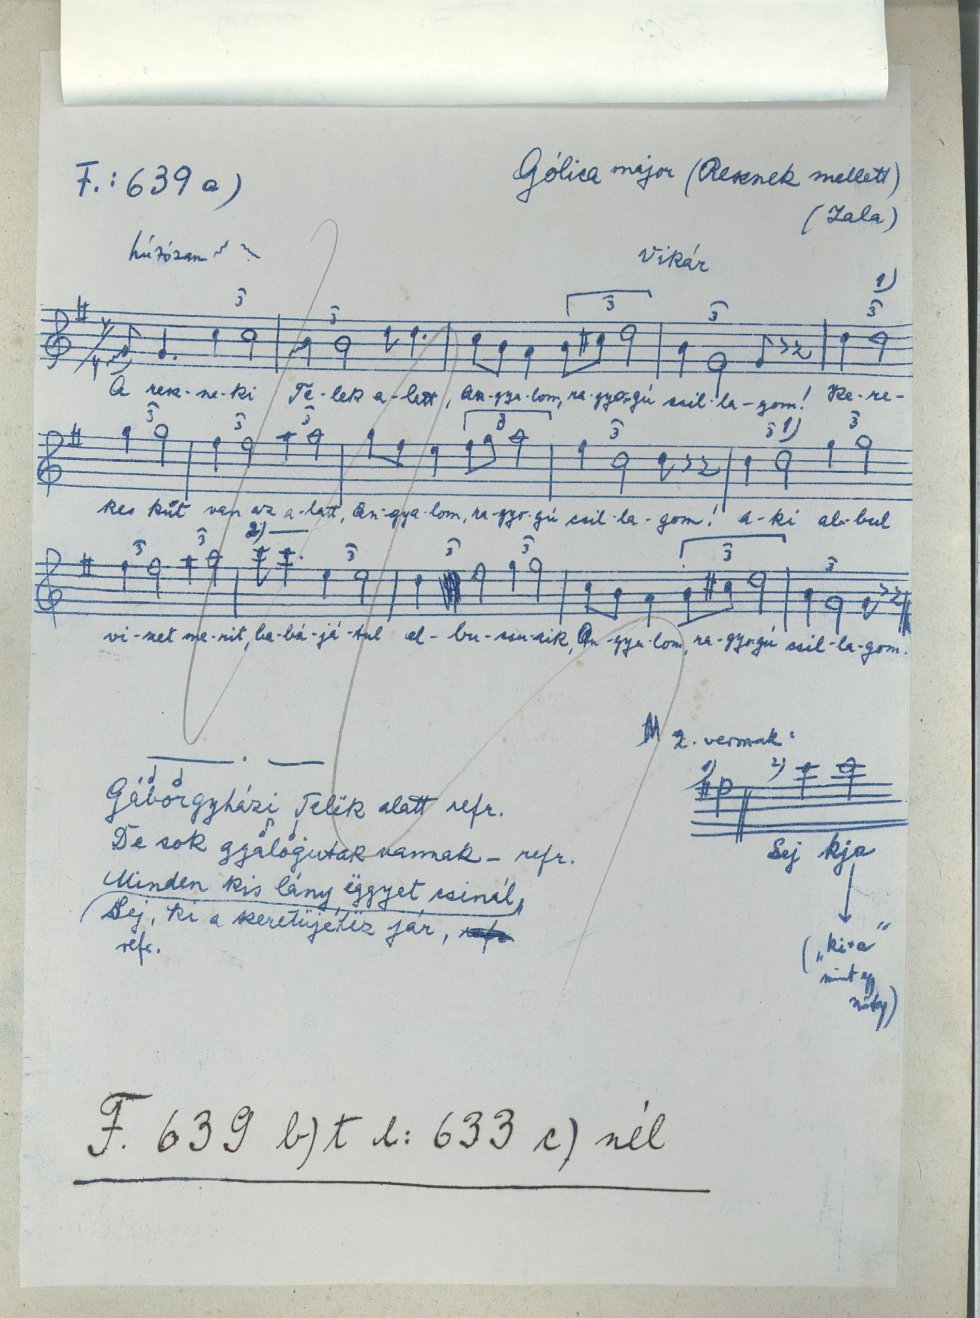 F.: 639 a)
Gólica májor (Resznek mellett)
(Zala)
húzósan
Vikár
1)
3 3 3 3 3
A resz-ne-ki Te-lek a-lett, an-gya-lom, ra-gyo-gú csil-la-gom! Ke-re-
3 3 3 3 3 3 1) 3
kes kút van az a-latt, an-gya-lom, ra-gyo-gú csil-la-gom! a-ki ab-bul
3 3 2) 3 3 3 3 3
vi-zet me-rit, ba-bá-já-tul el-bu-csu-zik, An-gya-lom, ra-gyo-gú csil-la-gom.
2. versnak:
1) 2)
Sej kja
Gáborgyházi Telik alatt refr.
De sok gyalogutak vannak – refr.
Minden kis lány ëggyet csinál,
(Sej, ki a szeretüjétüz jár,
refr.
("ki-a"
mint egy
F. 639 b)t l: 633 c) nél